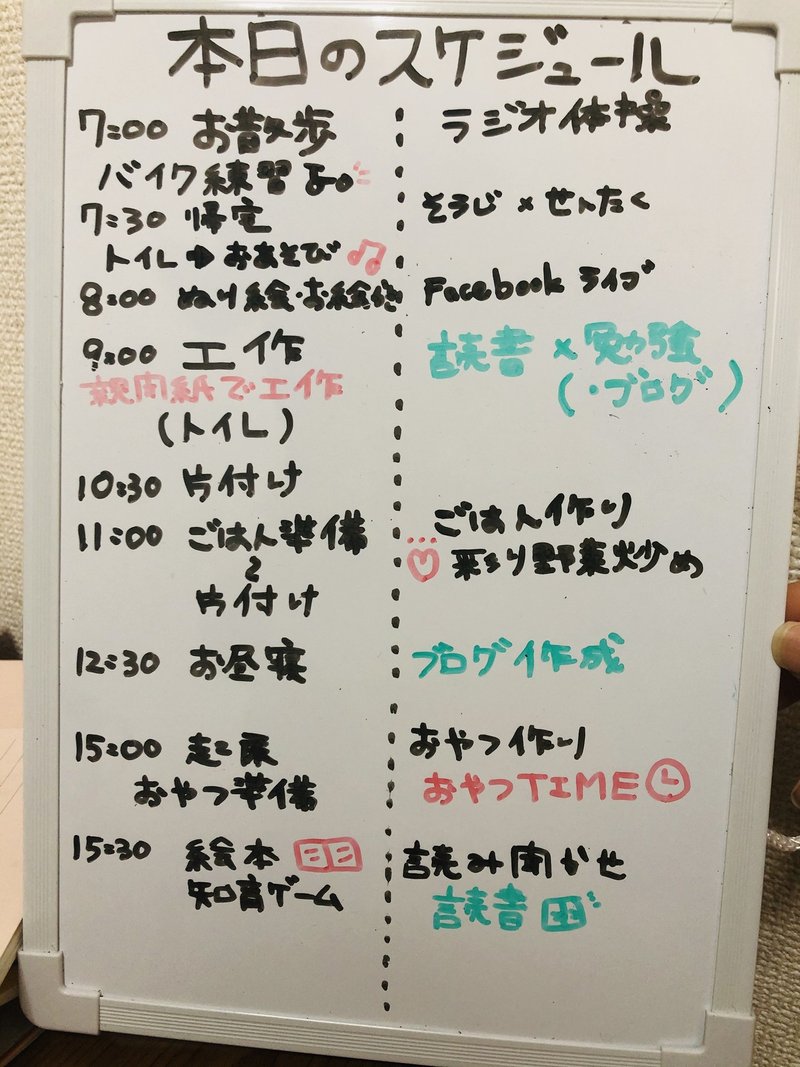 本日のスケジュール
7:00 お散歩
バイク練習
7:30 帰宅
トイレ→おあそび
8:00 ぬり絵・お絵描き
9:00 工作
新聞紙で工作
(トイレ)
10:30 片付け
11:00 ごはん準備
片付け
12:30 お昼寝
15:00 起床
おやつ準備
15:30 絵本
知育ゲーム
ラジオ体操
そうじ×せんたく
Facebook ライブ
読書×勉強
(・ブログ)
ごはん作り
彩り野菜炒め
ブログ作成
おやつ作り
おやつTIME
読み聞かせ
読書